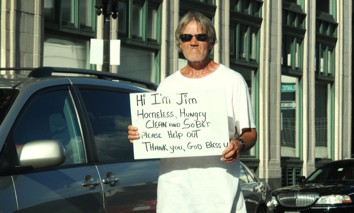 Hi I'm Jim
Homeless, Hungry
CLEAN AND SOBER
Please Help OUT
THANK YOU, GOD Bless U